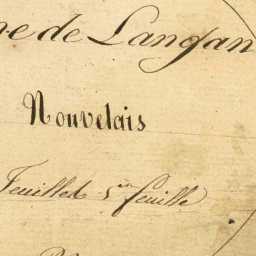 ne de Langan
Nouvelais
Feuille 5me feuille